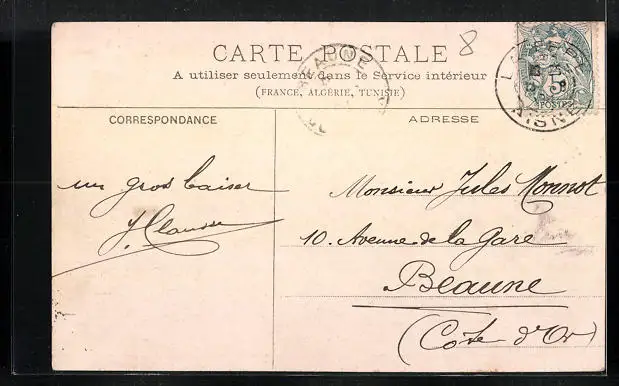 CARTE POSTALE
8
A utiliser seulement dans le Service intérieur
(FRANCE, ALGÉRIE, TUNISIE)
BEAUNE
LA FÈRE
AISNE
5
POSTES
CORRESPONDANCE
ADRESSE
un gros baiser
J. Clausse
Monsieur Jules Monnot
10. Avenue de la Gare
Beaune
(Côte d'Or)